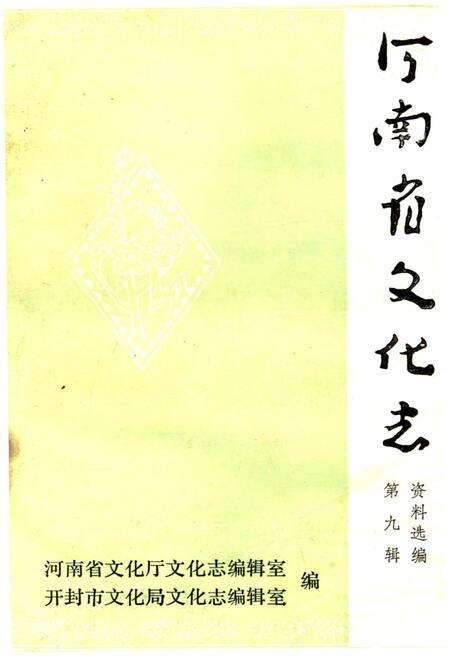 河南省文化志
资料选编
第九辑
河南省文化厅文化志编辑室
开封市文化局文化志编辑室
编